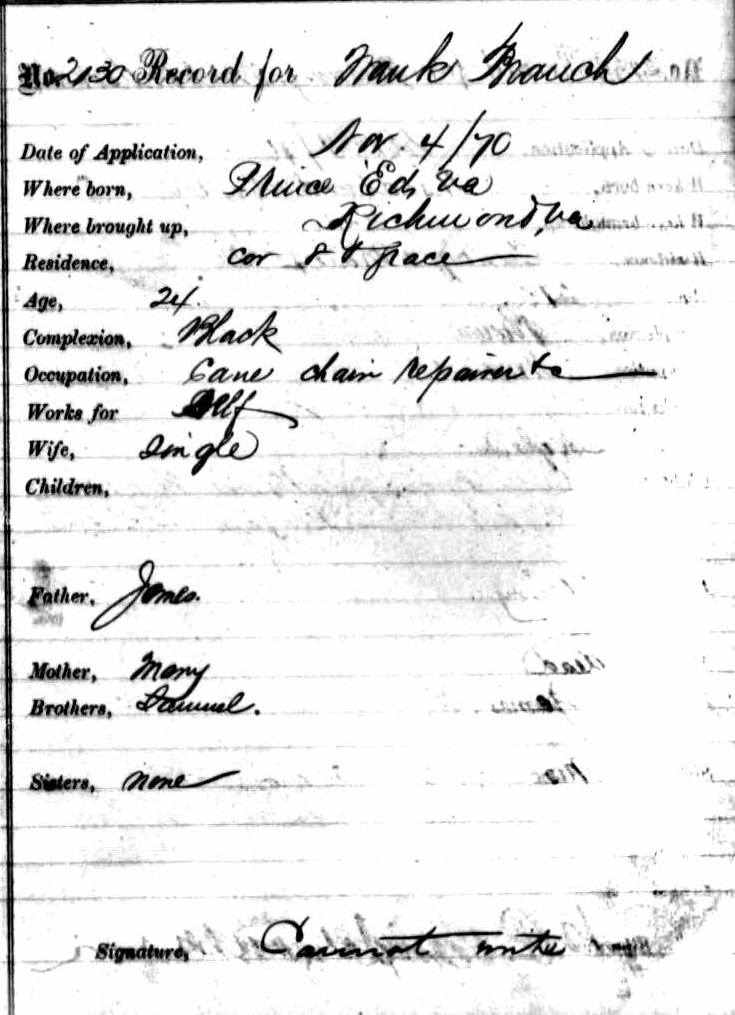 No. 2130 Record for Frank Branch
Date of Application, Nov. 4/70
Where born, Prince Ed, Va
Where brought up, Richmond, Va
Residence, cor 8 & Grace
Age, 24.
Complexion, Black
Occupation, Cane chair repairer &c
Works for Self
Wife, Single
Children,
Father, James.
Mother, Mary
Brothers, Samuel.
Sisters, none
Signature, Cannot write